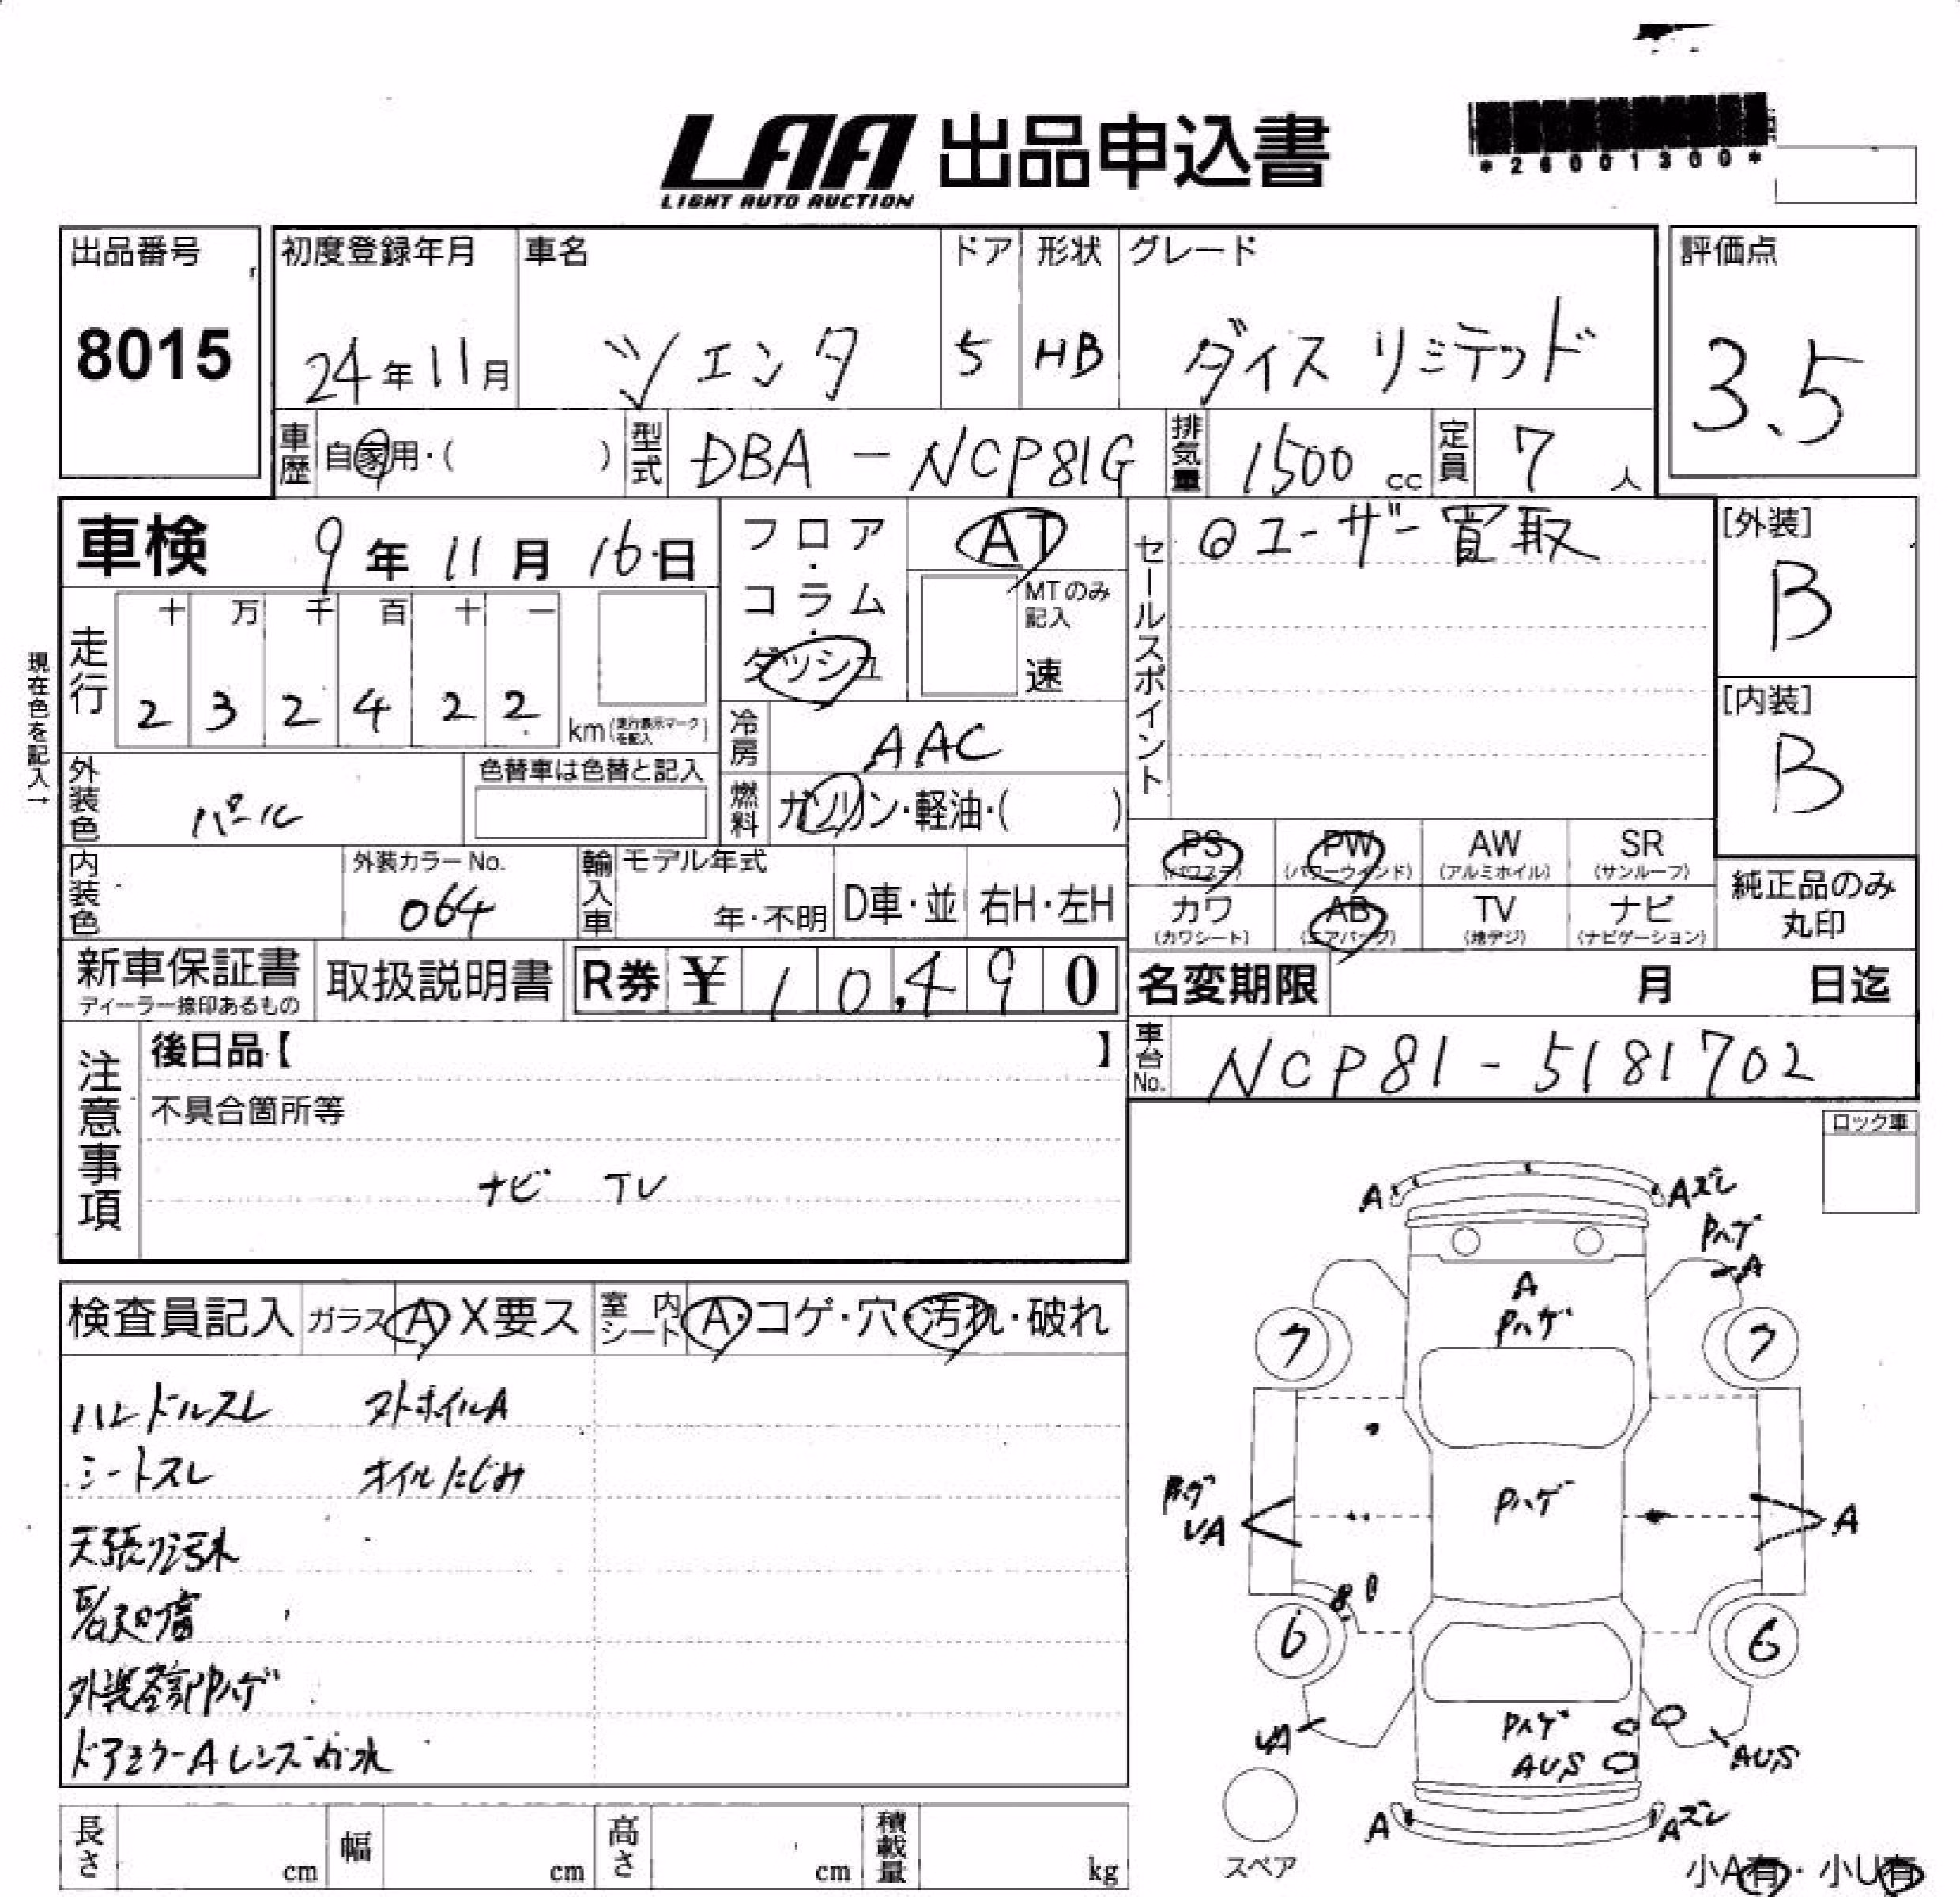 LAA 出品申込書
LIGHT AUTO AUCTION
*26001300*
出品番号
8015
初度登録年月
24年11月
車名
シエンタ
ドア
5
形状
HB
グレード
ダイス リミテッド
評価点
3.5
車歴 自家用・( )
型式 DBA-NCP81G
排気量 1500 cc
定員 7 人
車検 9年11月16日
フロア・コラム・ダッシュ
AT
MTのみ記入
速
セールスポイント
◎ユーザー買取
[外装]
B
[内装]
B
現在色を記入→
走行
十 万 千 百 十 一
2 3 2 4 2 2
km(走行表示マークを記入)
冷房 AAC
燃料 ガソリン・軽油・( )
外装色 パール
色替車は色替と記入
内装色
外装カラーNo.
064
輸入車
モデル年式
年・不明
D車・並
右H・左H
PS (パワステ)
PW (パワーウィンド)
AW (アルミホイル)
SR (サンルーフ)
カワ (カワシート)
AB (エアバッグ)
TV (地デジ)
ナビ (ナビゲーション)
純正品のみ丸印
新車保証書
ディーラー捺印あるもの
取扱説明書
R券 ¥ 10,490
名変期限 月 日迄
車台No. NCP81-5181702
注意事項
後日品【 】
不具合箇所等
ナビ TV
ロック車
検査員記入 ガラス A X要ス
室内シート A・コゲ・穴・汚れ・破れ
ハンドルスレ タトホイルA
シートスレ オイルにじみ
天張り汚れ
外装各部Pハゲ
ドアミラーAレンズ
A
Aズレ
Pハゲ
A
A
Pハゲ
7
7
Pハゲ
Pハゲ
UA
A
6
6
UA
Pハゲ
AUS
AUS
A
Aズレ
スペア
小A有・小U有
長さ cm
幅 cm
高さ cm
積載量 kg